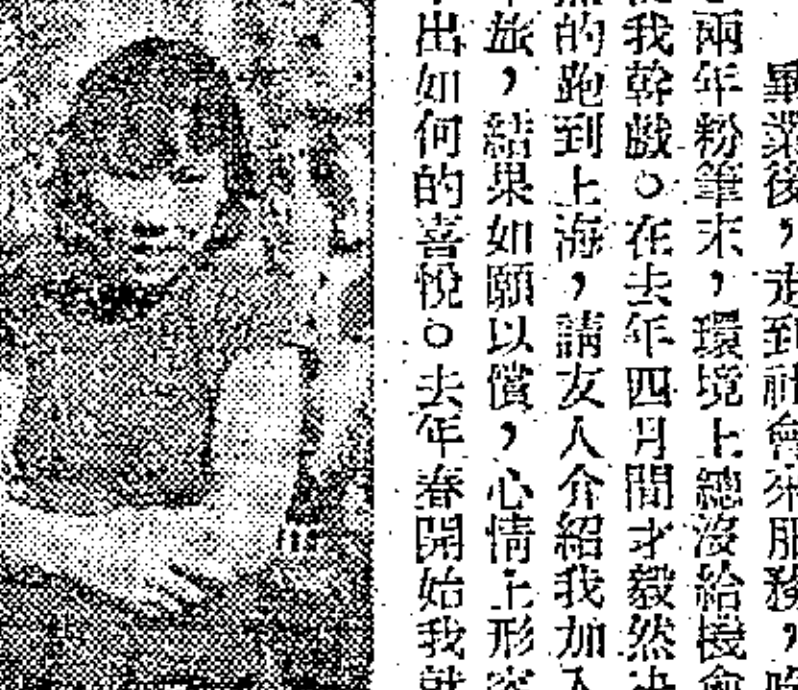 畢業後，走到社會來服務，
兩年粉筆末，環境上總沒給機會
我幹戲。在去年四月間才毅然決
然的跑到上海，請女人介紹我加入
旅，結果如願以償，心情上形容
出如何的喜悅。去年春開始我就